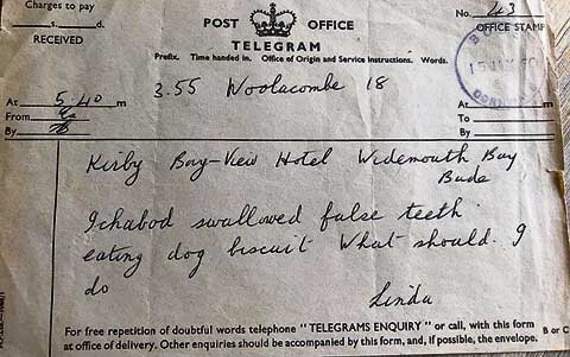 Charges to pay
s. d.
RECEIVED
POST OFFICE
TELEGRAM
Prefix. Time handed in. Office of Origin and Service Instructions. Words.
No. 43
OFFICE STAMP
3.55 Woolacombe 18
At 5.40 m
From
By
At m
To
By
Kirby Bay-View Hotel Widemouth Bay
Bude
Ichabod swallowed false teeth
eating dog biscuit What should I
do
Linda
For free repetition of doubtful words telephone "TELEGRAMS ENQUIRY" or call, with this form
at office of delivery. Other enquiries should be accompanied by this form, and, if possible, the envelope.
B or C